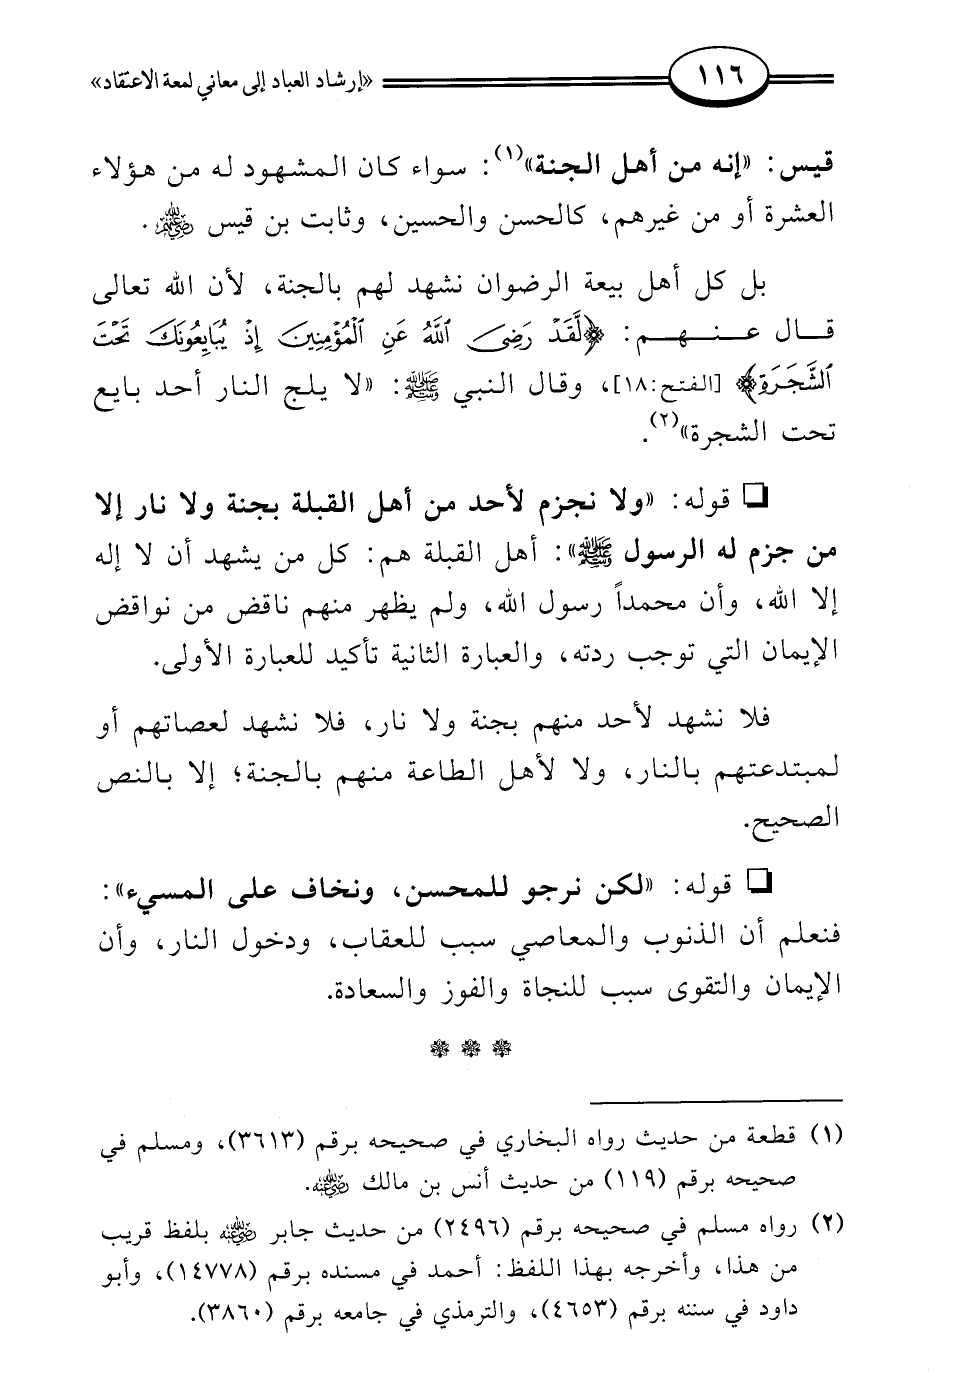 ١١٦ «إرشاد العباد إلى معاني لمعة الاعتقاد»
قيس: «إنه من أهل الجنة»(١): سواء كان المشهود له من هؤلاء
العشرة أو من غيرهم، كالحسن والحسين، وثابت بن قيس رضي الله عنهم.
بل كل أهل بيعة الرضوان نشهد لهم بالجنة، لأن الله تعالى
قال عنهم: ﴿لَّقَدْ رَضِيَ ٱللَّهُ عَنِ ٱلْمُؤْمِنِينَ إِذْ يُبَايِعُونَكَ تَحْتَ
ٱلشَّجَرَةِ﴾ [الفتح:١٨]، وقال النبي ﷺ: «لا يلج النار أحد بايع
تحت الشجرة»(٢).
❏ قوله: «ولا نجزم لأحد من أهل القبلة بجنة ولا نار إلا
من جزم له الرسول ﷺ»: أهل القبلة هم: كل من يشهد أن لا إله
إلا الله، وأن محمداً رسول الله، ولم يظهر منهم ناقض من نواقض
الإيمان التي توجب ردته، والعبارة الثانية تأكيد للعبارة الأولى.
فلا نشهد لأحد منهم بجنة ولا نار، فلا نشهد لعصاتهم أو
لمبتدعتهم بالنار، ولا لأهل الطاعة منهم بالجنة؛ إلا بالنص
الصحيح.
❏ قوله: «لكن نرجو للمحسن، ونخاف على المسيء»:
فنعلم أن الذنوب والمعاصي سبب للعقاب، ودخول النار، وأن
الإيمان والتقوى سبب للنجاة والفوز والسعادة.
(١) قطعة من حديث رواه البخاري في صحيحه برقم (٣٦١٣)، ومسلم في
صحيحه برقم (١١٩) من حديث أنس بن مالك رضي الله عنه.
(٢) رواه مسلم في صحيحه برقم (٢٤٩٦) من حديث جابر رضي الله عنه بلفظ قريب
من هذا، وأخرجه بهذا اللفظ: أحمد في مسنده برقم (١٤٧٧٨)، وأبو
داود في سننه برقم (٤٦٥٣)، والترمذي في جامعه برقم (٣٨٦٠).